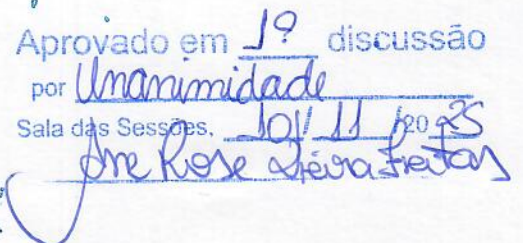 Aprovado em 1º discussão
por Unanimidade
Sala das Sessões, 10/ 11 /20 25
Rose Freitas